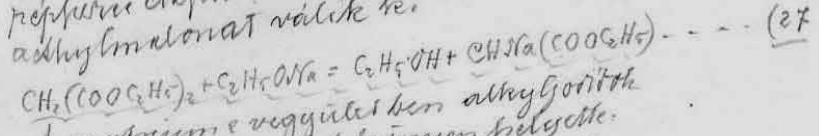 aethylmalonat válik ki.
CH₂(COOC₂H₅)₂ + C₂H₅ONa = C₂H₅OH + CHNa(COOC₂H₅) - - - - (27
e vegyületben alkyljoditok
helyette.